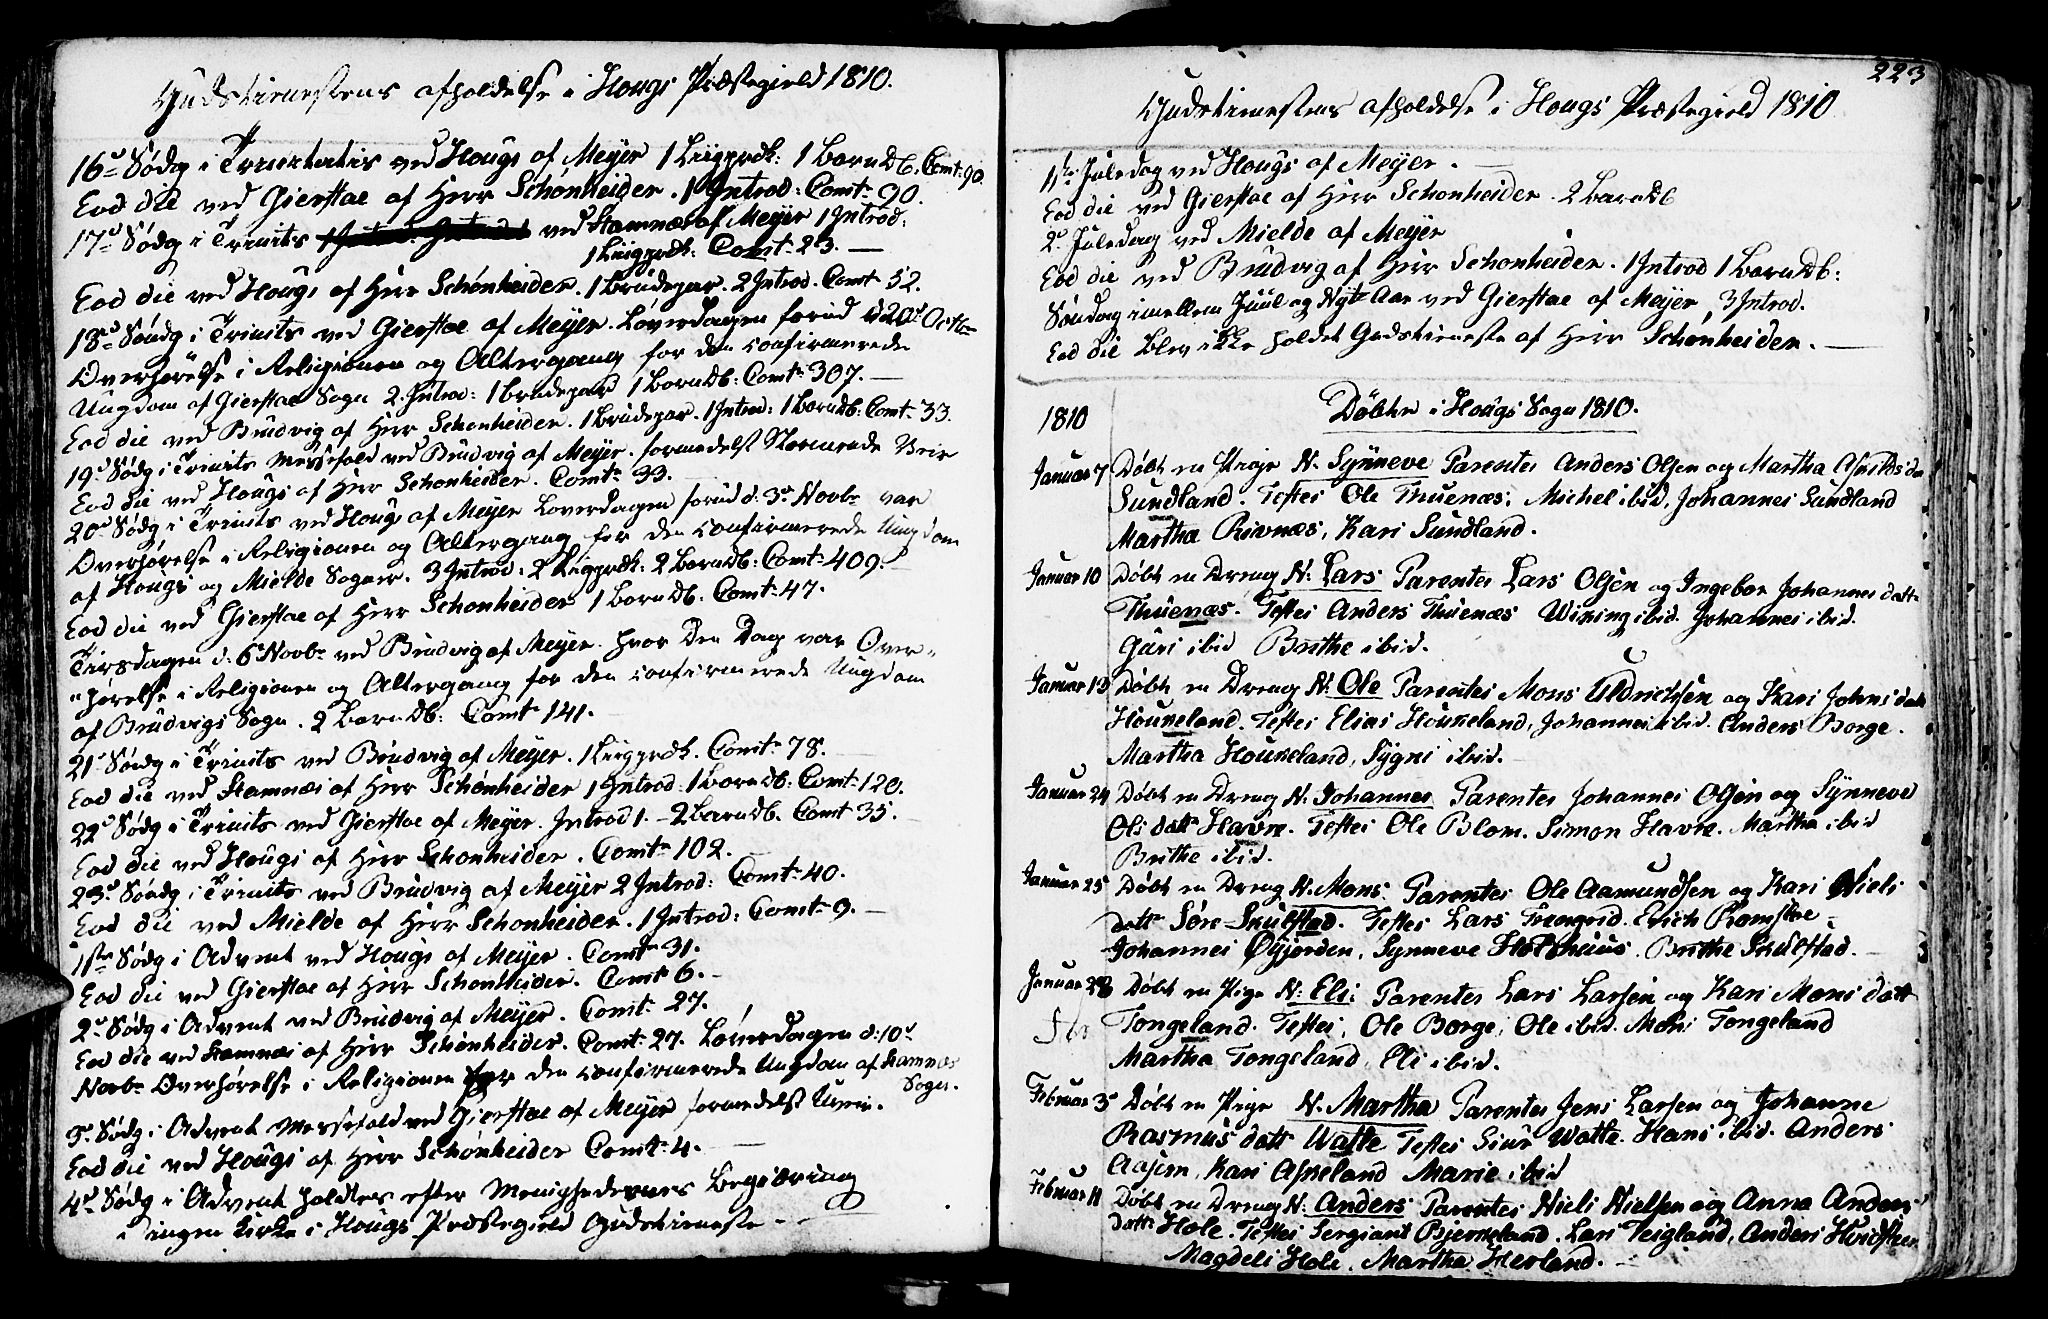 Gudstienestens afholdelse i Hougs Præstegield 1810.
16d Sødg i Trinitatis ved Hougs af Meyer 1 Liigprdk: 1 BarnDb. Comt: 90.
Eod die ved Gierstae af Herr Schønheider. 1 Introd: Comt: 90.
17d Sødg i Trinits ved Stamnæs af Meyer 1 Introd:
1 Liigprdk: Comt: 23. —
Eod die ved Hougs af Herr Schønheider. 1 Brudepar. 2 Introd. Comt 52.
18d Søndg i Trinits ved Gierstae af Meyer. Løverdagen forud d 20d Octbr
Overhørelse i Religionen og Altergang for den confirmerede
Ungdom af Gierstae Sogn 2. Introd: 1 brudepar 1 BarnDb: Comt: 307. —
Eod die ved Brudvig af Herr Schønheider. 1 Brudepar. 1 Introd: 1 BarnDb: Comt: 33.
19d Sødg i Trinits Messefald ved Brudvig af Meyer. formedelst Stormende Veir
Eod die ved Hougs af Herr Schønheider. Comt: 33. —
20d Sødg i Trinits ved Hougs af Meyer Løverdagen forud d: 3d Novbr var
Overhørelse i Religionen og Altergang for den confirmerede Ungdom
af Hougs og Mielde Sogner. 3 Introd: 2 Liigprdk: 2 BarnDb: Comt: 409. —
Eod die ved Gierstae af Herr Schønheider 1 BarnDb. Comt: 47.
Tirsdagen d: 6d Novbr ved Brudvig af Meyer. hvor Den Dag var Over„
„hørelse i Religionen og Altergang for den confirmerede Ungdom
af Brudvigs Sogn. 2 BarnDb: Comt: 141. —
21d Søndg i Trinits ved Brudvig af Meyer. 1 Liigprdk. Comt: 78. —
Eod die ved Stamnæs af Herr Schønheider 1 Introd: 1 BarnDb: Comt: 120.
22d Sødg i Trinits ved Gierstae af Meyer. Introd 1. - 2 BarnDb. Comt 35. —
Eod die ved Hougs af Herr Schønheider. Comt: 102. —
23d Søndg i Trinits ved Brudvig af Meyer 2 Introd: Comt: 40.
Eod die ved Mielde af Herr Schønheider. 1 Introd: Comt: 9. —
1ste Sødg i Advent ved Hougs af Meyer. Comt: 31.
Eod die ved Gierstae af Herr Schønheider. Comt 6. —
2d Sødg i Advent ved Brudvig af Meyer. Comt: 27.
Eod die ved Stamnæs af Herr Schønheider. Comt: 27. Løverdagen d: 10d
Novbr Overhørelse i Religionen for den confirmerede Ungdom af Stamnæs
Sogn.
3d Sødg i Advent Messefald ved Gierstae af Meyer formedelst Uveir.
Eod die ved Hougs af Herr Schønheider Comt: 4. —
4d Sødg i Advent holdtes efter Menighedernes Begiæring
i ingen Kirke i Hougs Præstegield Gudstieneste. —
223
Gudstienestens afholdelse i Hougs Præstegield 1810
1ste Juledag ved Hougs af Meyer. —
Eod die ved Gierstae af Herr Schønheider. 2 BarnDb
2d Juledag ved Mielde af Meyer
Eod die ved Brudvig af Herr Schønheider. 1 Introd 1 BarnDb:
Søndag imellem Juul og Nyt Aar ved Gierstae af Meyer, 3 Introd.
Eod die blev ikke holdet Gudstieneste af Herr Schønheider. —
1810
Døbte i Hougs Sogn 1810.
Januar 7 Døbt en Pige N. Synneve Parentes Anders Olsen og Martha
Sundland. Testes Ole Thuenæs, Michel ibid, Johannes Sundland
Martha Rivnæs, Kari Sundland.
Januar 10 Døbt en Dreng N: Lars Parentes Lars Olsen og Ingebor Johannes datt
Thuenæs. Testes Anders Thuenæs Wiking ibid. Johannes ibid.
Guri ibid Brithe ibid.
Januar 13 Døbt en Dreng N: Ole Parentes Mons Uldrichsen og Kari Johns datt
Houkeland. Testes Elias Houkeland, Johannes ibid. Anders Borge.
Martha Houkeland, Sygni ibid.
Januar 24 Døbt en Dreng N. Johannes Parentes Johannes Olsen og Synneve
Ols datt Havre. Testes Ole Blom. Simon Havre. Martha ibid
Brithe ibid.
Januar 25 Døbt en Dreng N. Mons. Parentes Ole Aamundsen og Kari Niels
datt Søre-Skulstad. Testes Lars Erich Ramstae
Johannes Øyjorden, Synneve Holshuus. Brithe Skulstad. —
Januar 28 Døbt en Pige N: Eli: Parentes Lars Larsen og Kari Mons datt
Tongeland. Testes, Ole Borge, Ole ibid. Mons Tongeland
Martha Tongeland, Eli ibid.
Februar 3d Døbt en Pige N. Martha Parentes Jens Larsen og Johanne
Rasmus datt Watle Testes Siur Watle. Hans ibid. Anders
Aasem, Kari Aspeland Marie ibid
Februar 11 Døbt en Dreng N: Anders Parentes Niels Nielsen og Anna Anders
datt: Hole. Testes Sergiant Bjerkeland. Lars Teigland, Anders Hvidsteen
Magdeli Hole. Martha Herland. —